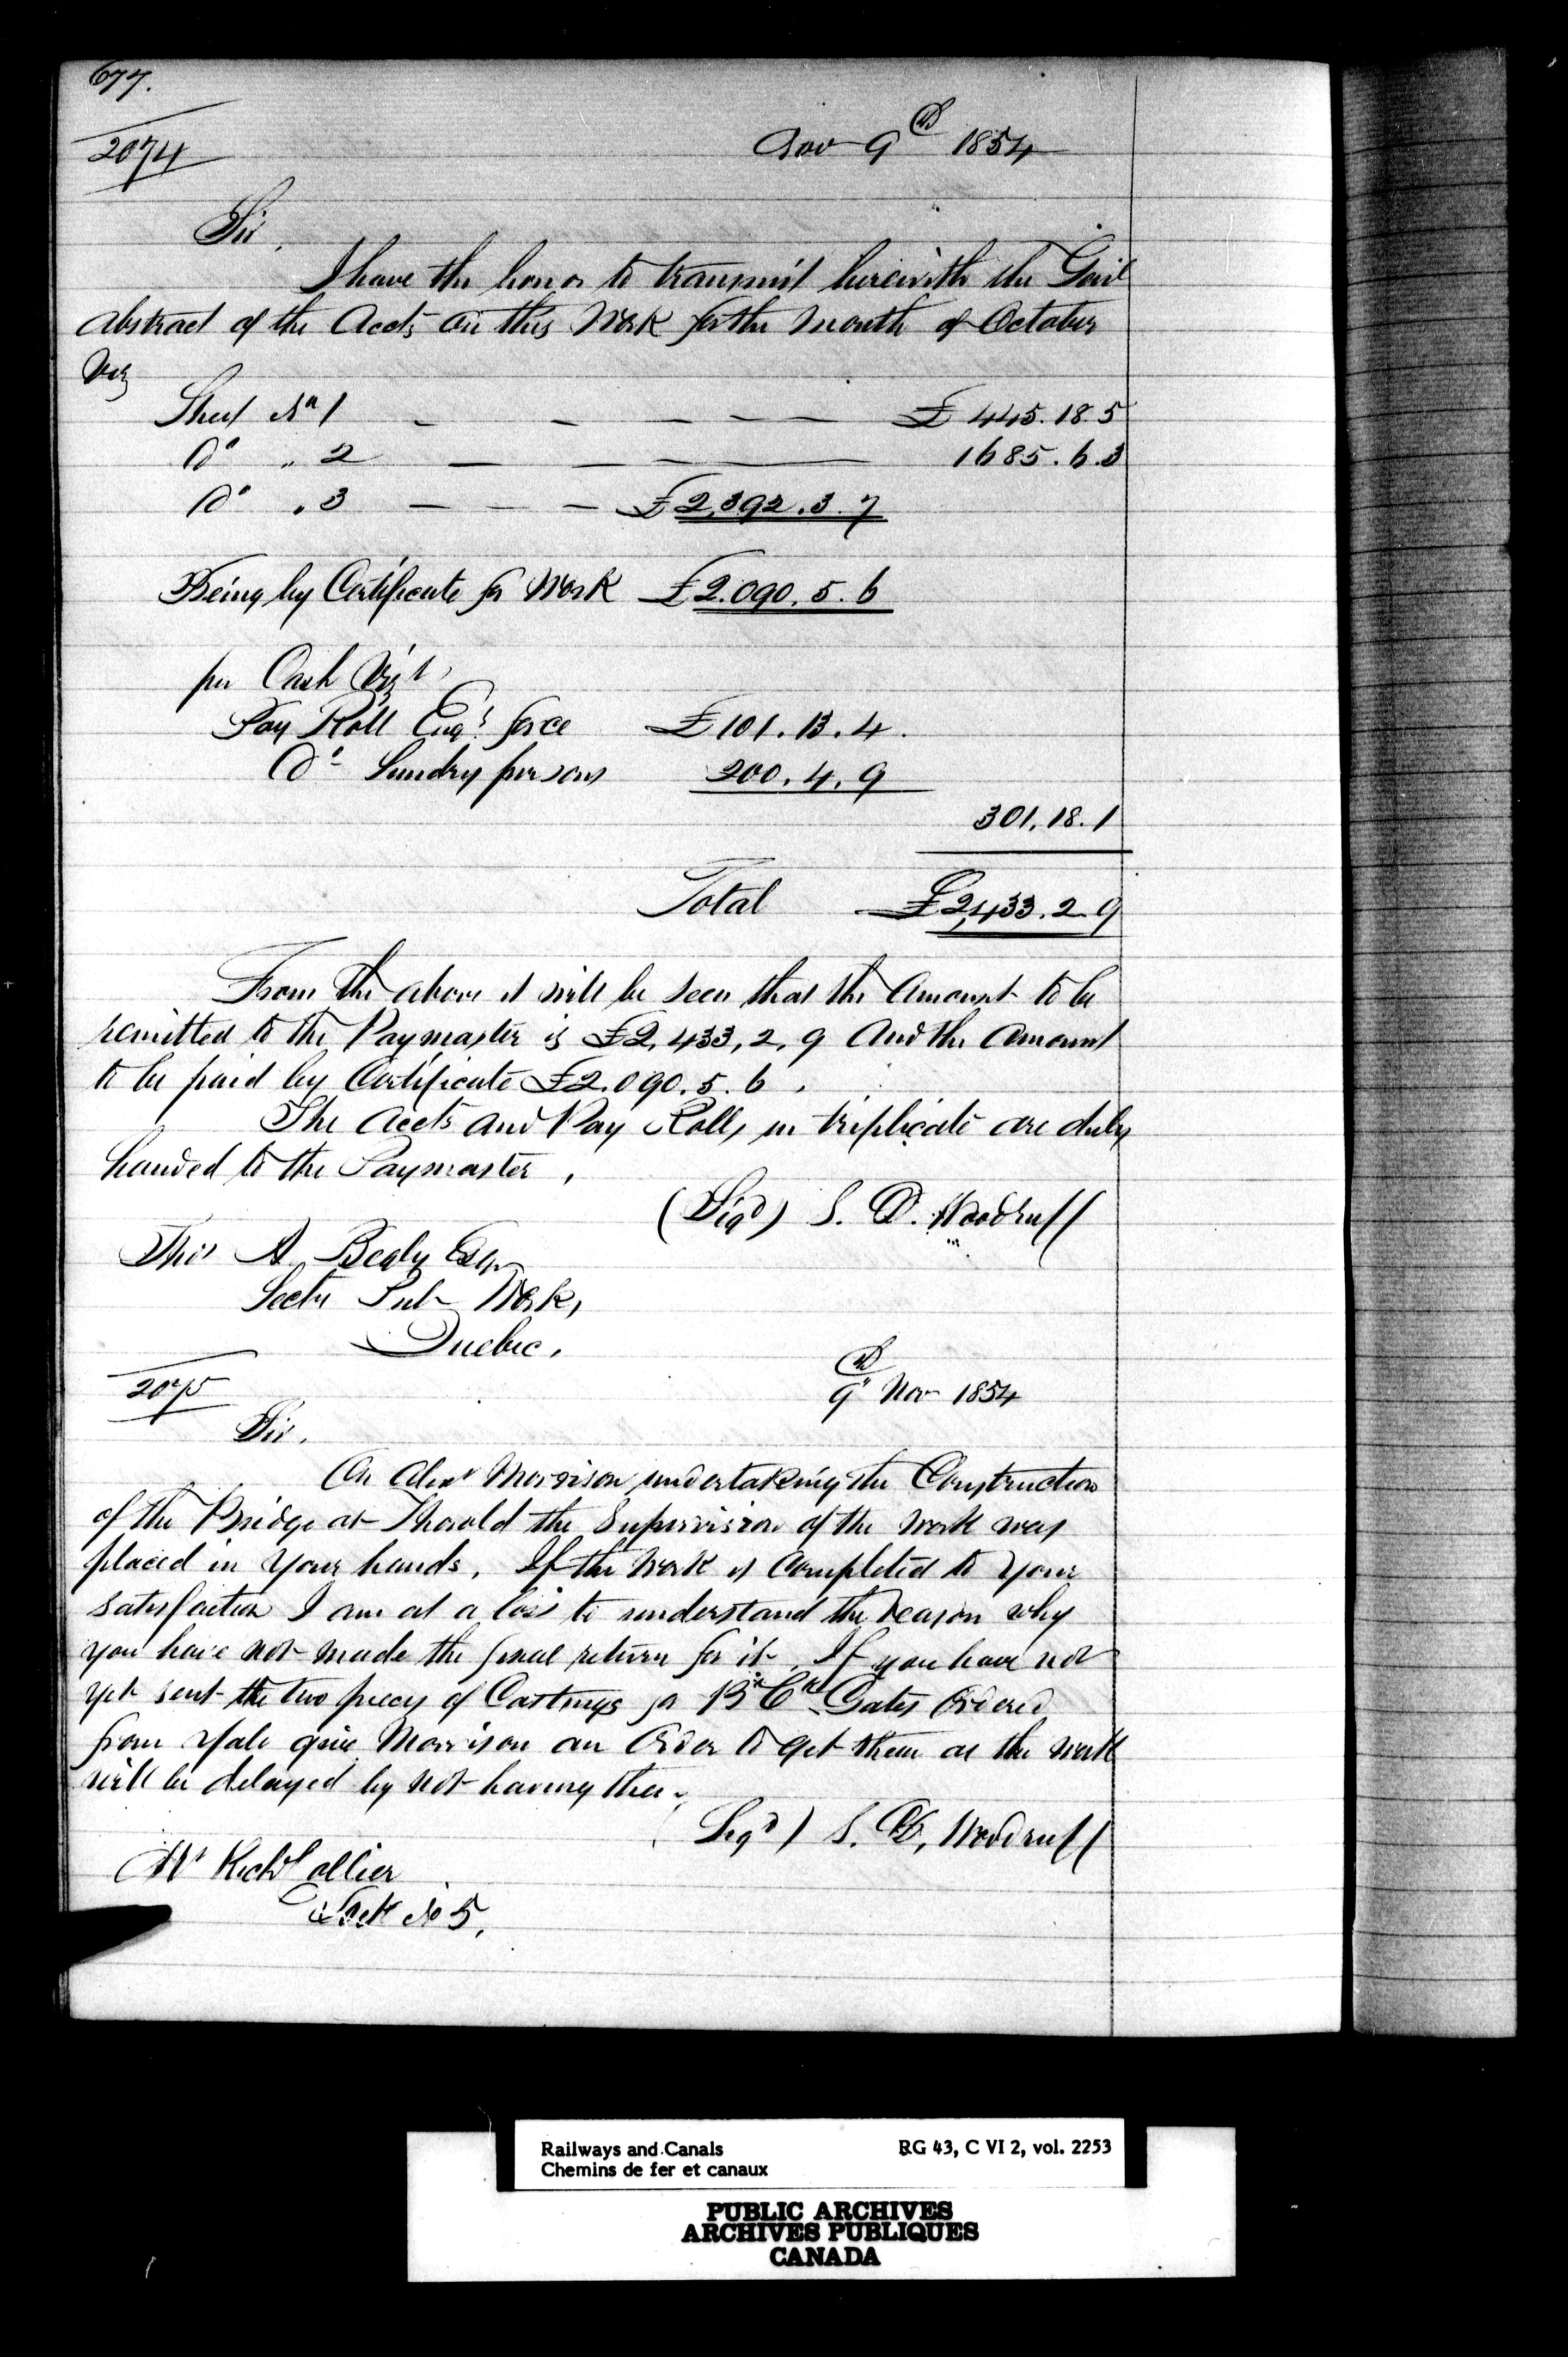 677.
2074
Nov 9th 1854
Sir,
I have the honor to transmit herewith the Genl
Abstract of the Accts on this Work for the Month of October
Viz
Sheet No 1 — — — — — £ 445.18.5
Do " 2 — — — — 1685.6.3
Do " 3 — — — £2,392.3.7
Being by Certificate for Work £2.090.5.6
per Cash Vizt
Pay Roll Engr force £101.13.4.
Do Sundry persons 200.4.9
301.18.1
Total £2,433.2.9
From the above it will be seen that the Amount to be
remitted to the Paymaster is £2,433,2,9 And the Amount
to be paid by Certificate £2.090.5.6.
The Accts and Pay Rolls in triplicate are duly
handed to the Paymaster,
(Sigd) S. D. Woodruff
Thos A Begly Esqr
Secty Pub Works,
Quebec.
2075
9" Nov 1854
Sir,
On Alexr Morrison undertaking the Construction
of the Bridge at Thorold the Supervision of the Work was
placed in Your hands. If the Work is Completed to Your
Satisfaction I am at a loss to understand the reason why
you have not made the final return for it. If you have not
yet sent the two pieces of Castings for Gates Ordered
from Yale give Morrison an Order to get them as the Work
will be delayed by not having them.
(Sigd) S. D, Woodruff
Mr Richd Collier
Lock No 5,
Railways and Canals
Chemins de fer et canaux
RG 43, C VI 2, vol. 2253
PUBLIC ARCHIVES
ARCHIVES PUBLIQUES
CANADA